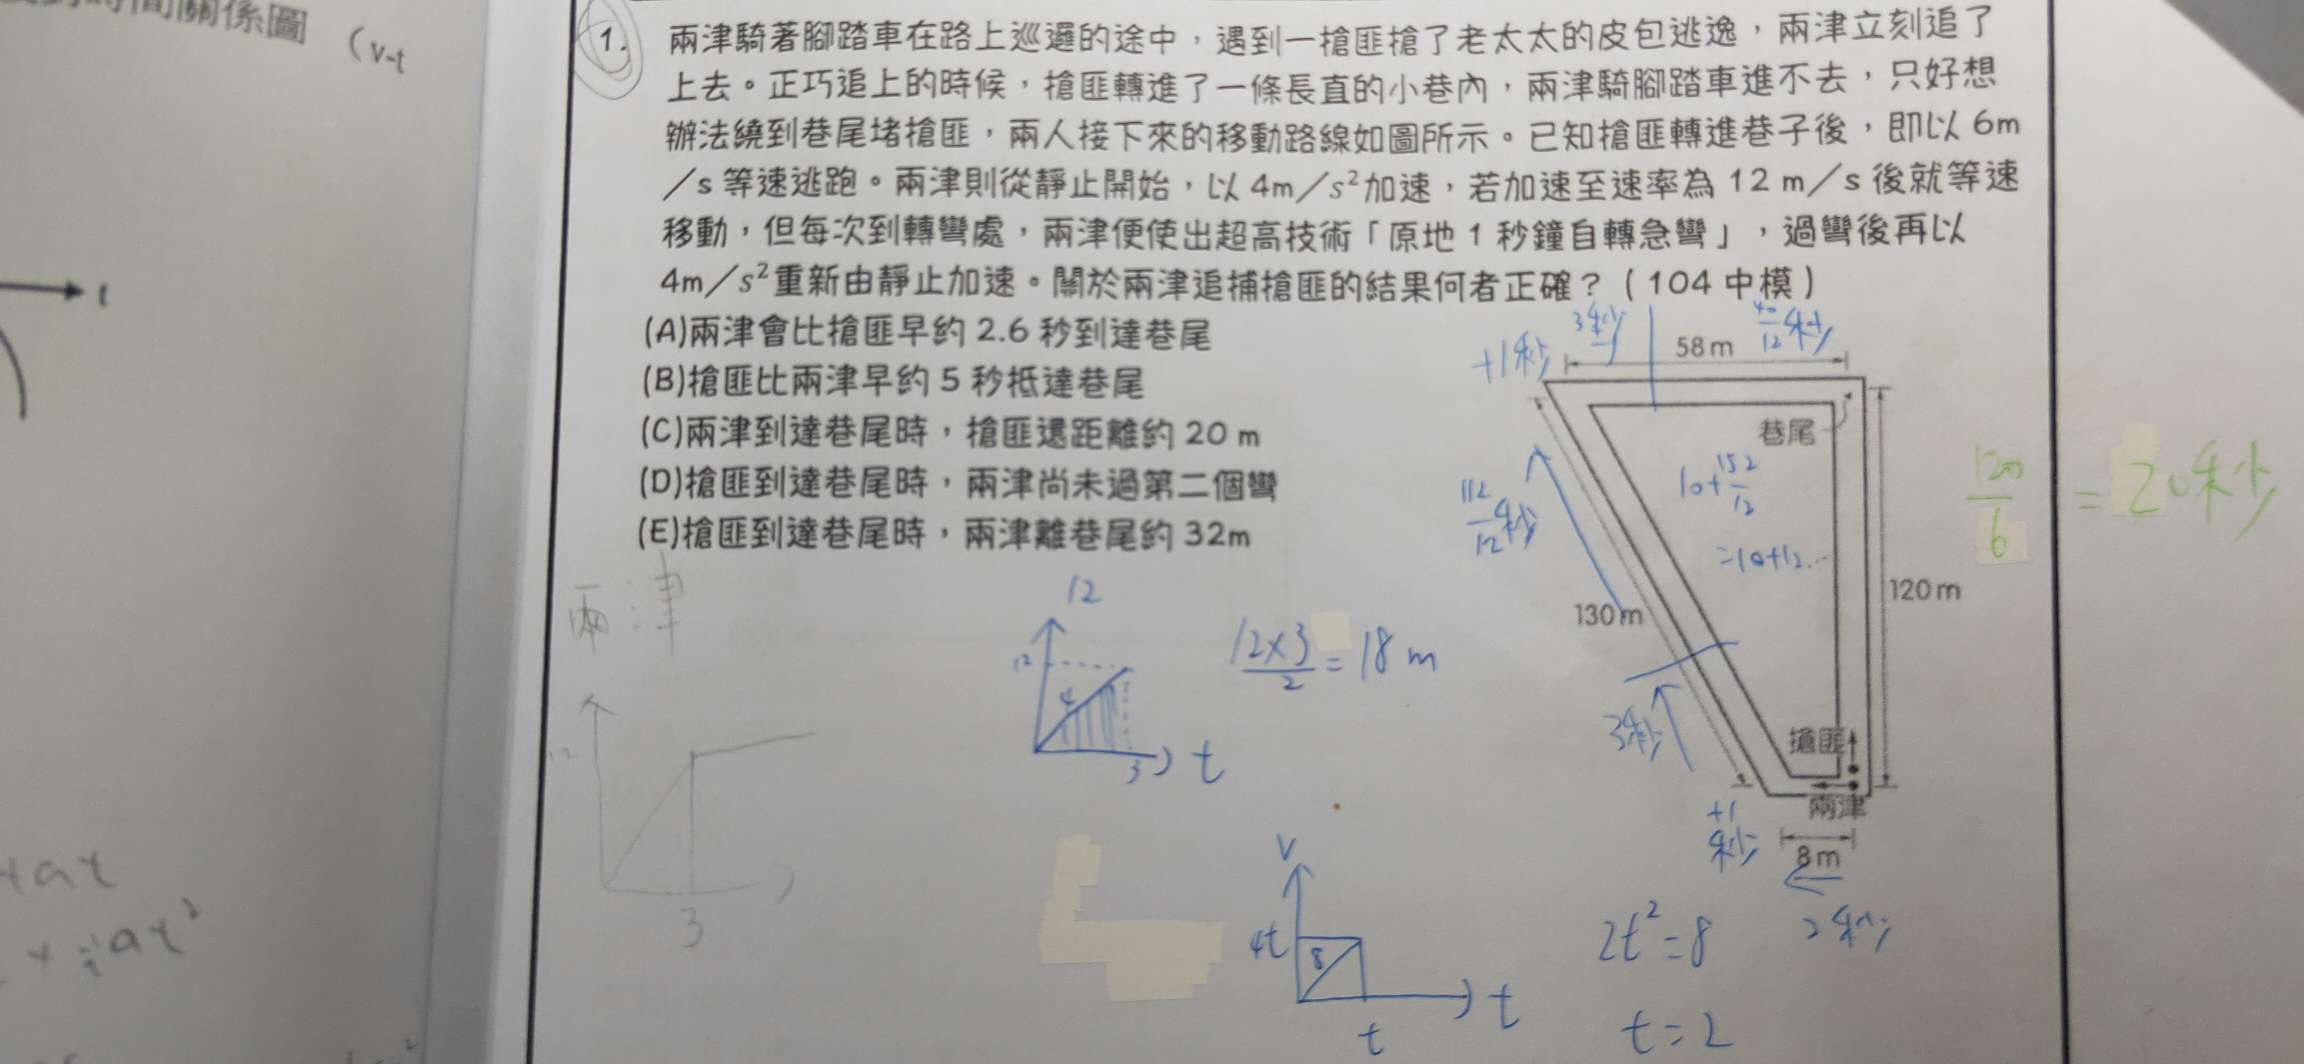 時間關係圖
(v-t
t
+at
+½at²
1. 兩津騎著腳踏車在路上巡邏的途中，遇到一搶匪搶了老太太的皮包逃逸，兩津立刻追了
上去。正巧追上的時候，搶匪轉進了一條長直的小巷內，兩津騎腳踏車進不去，只好想
辦法繞到巷尾堵搶匪，兩人接下來的移動路線如圖所示。已知搶匪轉進巷子後，即以 6m
／s 等速逃跑。兩津則從靜止開始，以 4m／s²加速，若加速至速率為 12 m／s 後就等速
移動，但每次到轉彎處，兩津便使出超高技術「原地 1 秒鐘自轉急彎」，過彎後再以
4m／s²重新由靜止加速。關於兩津追捕搶匪的結果何者正確？（104 中模）
(A)兩津會比搶匪早約 2.6 秒到達巷尾
(B)搶匪比兩津早約 5 秒抵達巷尾
(C)兩津到達巷尾時，搶匪還距離約 20 m
(D)搶匪到達巷尾時，兩津尚未過第二個彎
(E)搶匪到達巷尾時，兩津離巷尾約 32m
+1秒
3秒
40/12秒
58m
巷尾
10+152/12
=10+12...
112/12秒
130m
120m
120/6 = 20秒
3秒
搶匪
兩津
+1
秒
8m
2秒
兩津
12
3
12
12
4
3
t
12×3/2 = 18 m
v
4t
8
t
t
2t²=8
t=2